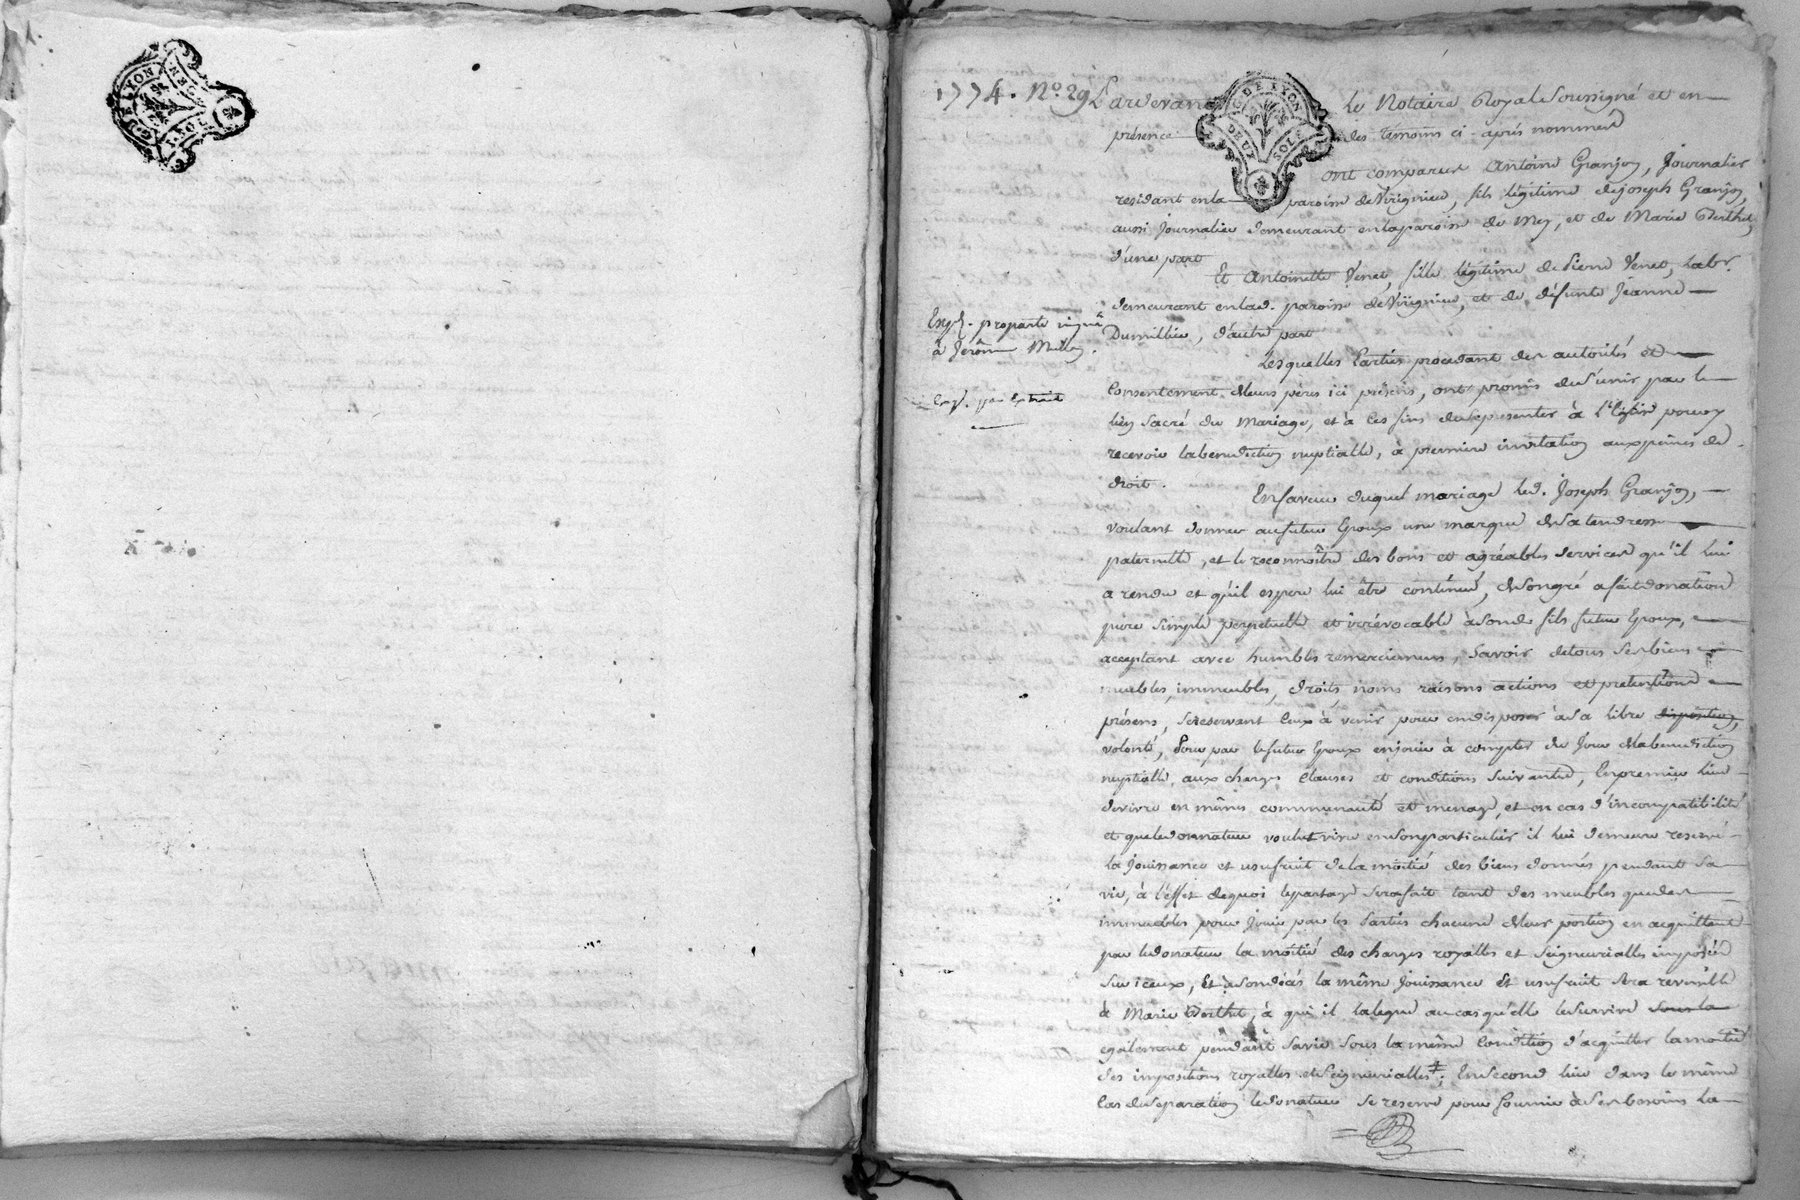 1.
G. DE LYON
MOYEN
1774. N.o 29
Pardevant Le Notaire Royal Soussigné et en
G. DE LYON
DEUX SOLS
présence des témoins ci-après nommés
ont comparus Antoine Granjon, Journalier
residant en la paroisse de Virignieu, fils légitime de joseph Granjon,
aussi Journalier demeurant en la paroisse de Mey, et de Marie Berthet,
d'une part
Et Antoinette Venet, fille légitime de Pierre Venet, labr.
demeurant en lad. paroisse de Virignieu, et de défunte Jeanne
Dumillieu, d'autre part
Exp. pr
à Jérôme
Exp. par Extrait
Lesquelles Parties procedant des autorités et
Consentement de leurs pères ici présens, ont promis de s'unir par le
lien Sacré du Mariage, et à ces fins de se presenter à l'Eglise pour y
recevoir la benediction nuptialle, à premiere invitation aux peines de
droit.
En faveur duquel mariage led. Joseph Granjon,
voulant donner au futur Epoux une marque de sa tendresse
paternelle, et le reconnoître des bons et agréables services qu'il lui
a rendu et qu'il espere lui être continués, de son gré a fait donation
pure simple perpetuelle et irrévocable à son d. fils futur Epoux,
acceptant avec humbles remerciemens, Savoir de tous ses biens
meubles, immeubles, droits, noms raisons actions et pretentions
présens, se reservant Ceux à venir pour en disposer à sa libre disposition,
volonté, Pour par le futur Epoux en jouir à compter du Jour de la benediction
nuptialle, aux charges Clauses et conditions suivantes, En premier lieu
de vivre en même communauté et menage, et en cas d'incompatibilité
et que le donateur voulut vivre en son particulier il lui demeure reservé
la Jouissance et usufruit de la moitié des biens donnés pendant sa
vie, à l'effet de quoi le partage sera fait tant des meubles que des
immeubles pour Jouir par les Parties chacune de leur portion en acquittant
par le donateur la moitié des charges royalles et seigneurialles imposées
sur iceux, Et à son décés la même Jouissance Et usufruit sera reversible
à Marie Berthet, à qui il la legue au cas qu'elle le survive sous la
egalement pendant sa vie sous la même Condition d'acquitter la moitié
des impositions royalles et Seigneurialles ; En second lieu dans le même
Cas de separation le donateur se reserve pour fournir à ses besoins la